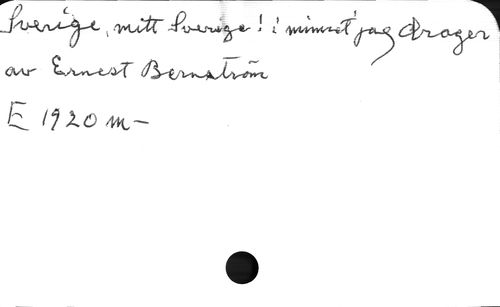 Sverige, mitt Sverige! i minnet jag drager
av Ernest Bernström
E 1920 m-